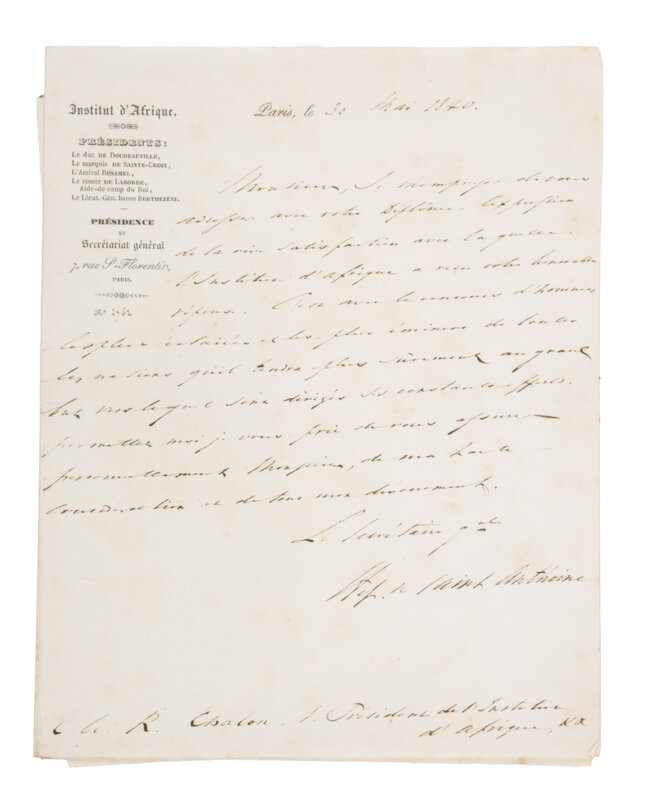 Institut d'Afrique.
PRÉSIDENTS:
Le duc de DOUDEAUVILLE,
Le marquis de SAINTE-CROIX,
L'Amiral ROSAMEL,
Le comte de LABORDE,
Aide-de-camp du Roi,
Le Lieut.-Gén. baron BERTHEZÈNE.
PRÉSIDENCE
ET
Secrétariat général
7, rue St-Florentin,
PARIS.
No 1762
Paris, le 30 Mai 1840.
Monsieur, Je m'empresse de vous
adresser avec votre Diplôme, l'expression
de la vive satisfaction avec laquelle
l'Institut d'Afrique a reçu votre honorable
réponse. C'est avec le concours d'hommes
les plus éclairés et les plus éminens de toutes
les nations qu'il tendra plus sûrement au grand
but vers lequel sont dirigés ses constans efforts.
permettez moi je vous prie de vous assurer
personnellement Monsieur, de ma haute
considération et de tout mon dévouement.
Le Secrétaire gal
de Saint Anthoine
R. Chalon, Président de l'Institut
d'Afrique,